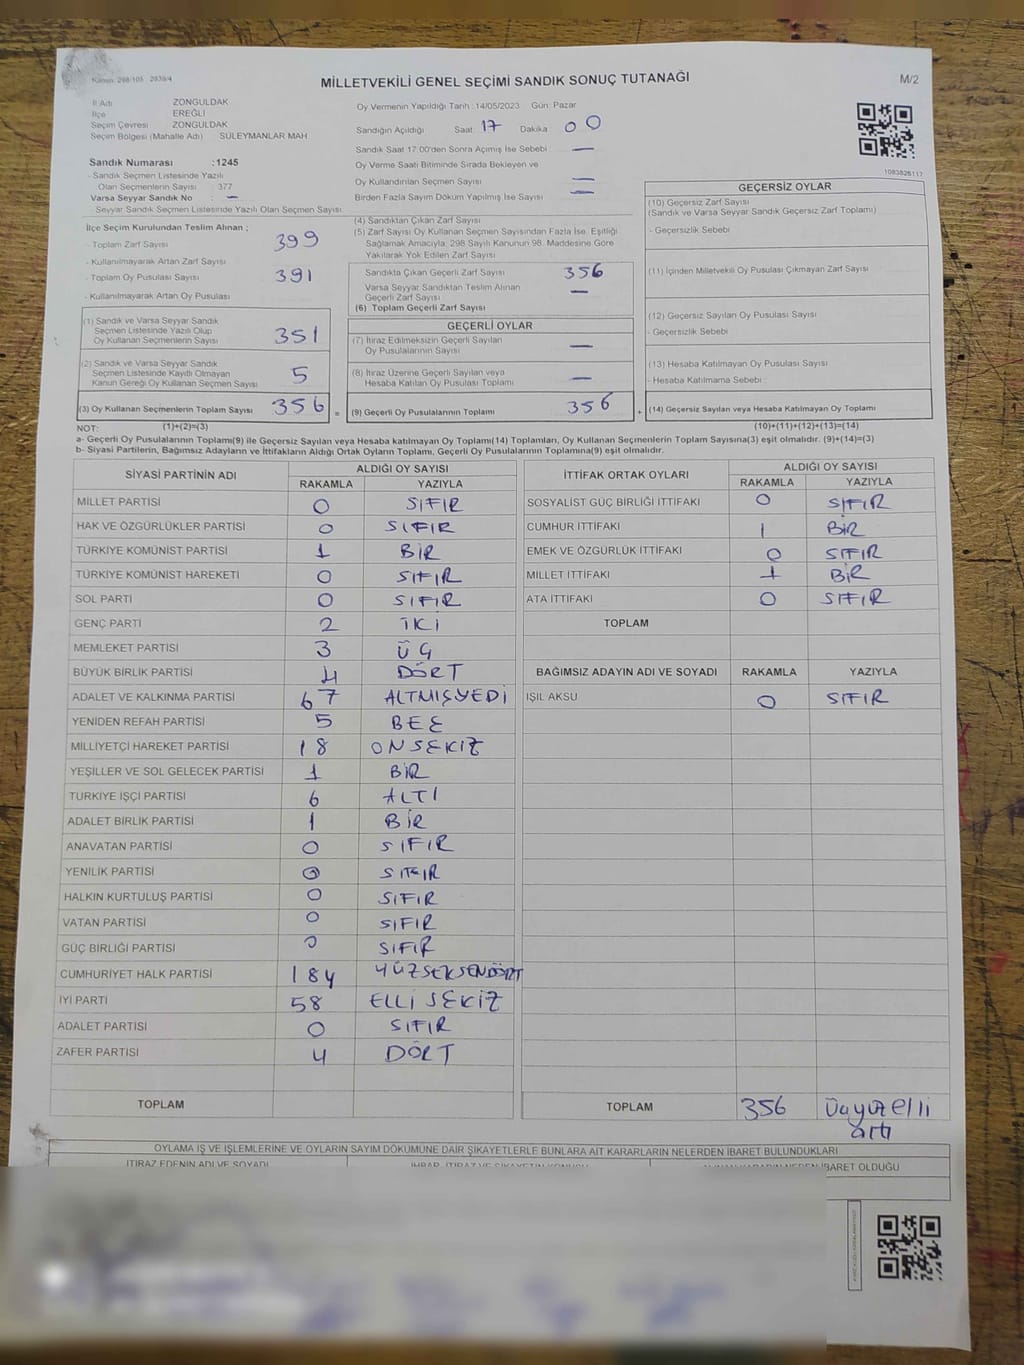 Kanun: 298/105 2839/4
MİLLETVEKİLİ GENEL SEÇİMİ SANDIK SONUÇ TUTANAĞI
M/2
İl Adı ZONGULDAK
İlçe EREĞLİ
Seçim Çevresi ZONGULDAK
Seçim Bölgesi (Mahalle Adı) SÜLEYMANLAR MAH
Sandık Numarası :1245
- Sandık Seçmen Listesinde Yazılı
Olan Seçmenlerin Sayısı : 377
Varsa Seyyar Sandık No : —
Seyyar Sandık Seçmen Listesinde Yazılı Olan Seçmen Sayısı
İlçe Seçim Kurulundan Teslim Alınan ;
- Toplam Zarf Sayısı 399
- Kullanılmayarak Artan Zarf Sayısı
- Toplam Oy Pusulası Sayısı 391
- Kullanılmayarak Artan Oy Pusulası
(1) Sandık ve Varsa Seyyar Sandık
Seçmen Listesinde Yazılı Olup
Oy Kullanan Seçmenlerin Sayısı 351
(2) Sandık ve Varsa Seyyar Sandık
Seçmen Listesinde Kayıtlı Olmayan
Kanun Gereği Oy Kullanan Seçmen Sayısı 5
(3) Oy Kullanan Seçmenlerin Toplam Sayısı 356 =
Oy Vermenin Yapıldığı Tarih : 14/05/2023 Gün: Pazar
Sandığın Açıldığı Saat 17 Dakika 00
Sandık Saat 17:00'den Sonra Açımış İse Sebebi —
Oy Verme Saati Bitiminde Sırada Bekleyen ve
Oy Kullandırılan Seçmen Sayısı —
Birden Fazla Sayım Döküm Yapılmış İse Sayısı —
(4) Sandıktan Çıkan Zarf Sayısı
(5) Zarf Sayısı Oy Kullanan Seçmen Sayısından Fazla İse, Eşitliği
Sağlamak Amacıyla, 298 Sayılı Kanunun 98. Maddesine Göre
Yakılarak Yok Edilen Zarf Sayısı
Sandıkta Çıkan Geçerli Zarf Sayısı 356
Varsa Seyyar Sandıktan Teslim Alınan
Geçerli Zarf Sayısı —
(6) Toplam Geçerli Zarf Sayısı
GEÇERLİ OYLAR
(7) İtiraz Edilmeksizin Geçerli Sayılan
Oy Pusulalarının Sayısı —
(8) İtiraz Üzerine Geçerli Sayılan veya
Hesaba Katılan Oy Pusulası Toplamı —
(9) Geçerli Oy Pusulalarının Toplamı 356 +
1083826117
GEÇERSİZ OYLAR
(10) Geçersiz Zarf Sayısı
(Sandık ve Varsa Seyyar Sandık Geçersiz Zarf Toplamı)
- Geçersizlik Sebebi
(11) İçinden Milletvekili Oy Pusulası Çıkmayan Zarf Sayısı
(12) Geçersiz Sayılan Oy Pusulası Sayısı
- Geçersizlik Sebebi
(13) Hesaba Katılmayan Oy Pusulası Sayısı
- Hesaba Katılmama Sebebi
(14) Geçersiz Sayılan veya Hesaba Katılmayan Oy Toplamı
NOT: (1)+(2)=(3) (10)+(11)+(12)+(13)=(14)
a- Geçerli Oy Pusulalarının Toplamı(9) ile Geçersiz Sayılan veya Hesaba katılmayan Oy Toplamı(14) Toplamları, Oy Kullanan Seçmenlerin Toplam Sayısına(3) eşit olmalıdır. (9)+(14)=(3)
b- Siyasi Partilerin, Bağımsız Adayların ve İttifakların Aldığı Ortak Oyların Toplamı, Geçerli Oy Pusulalarının Toplamına(9) eşit olmalıdır.
SİYASİ PARTİNİN ADI ALDIĞI OY SAYISI
RAKAMLA YAZIYLA
MİLLET PARTİSİ 0 SIFIR
HAK VE ÖZGÜRLÜKLER PARTİSİ 0 SIFIR
TÜRKİYE KOMÜNİST PARTİSİ 1 BİR
TÜRKİYE KOMÜNİST HAREKETİ 0 SIFIR
SOL PARTİ 0 SIFIR
GENÇ PARTİ 2 İKİ
MEMLEKET PARTİSİ 3 ÜÇ
BÜYÜK BİRLİK PARTİSİ 4 DÖRT
ADALET VE KALKINMA PARTİSİ 67 ALTMIŞYEDİ
YENİDEN REFAH PARTİSİ 5 BEŞ
MİLLİYETÇİ HAREKET PARTİSİ 18 ONSEKİZ
YEŞİLLER VE SOL GELECEK PARTİSİ 1 BİR
TÜRKİYE İŞÇİ PARTİSİ 6 ALTI
ADALET BİRLİK PARTİSİ 1 BİR
ANAVATAN PARTİSİ 0 SIFIR
YENİLİK PARTİSİ 0 SIFIR
HALKIN KURTULUŞ PARTİSİ 0 SIFIR
VATAN PARTİSİ 0 SIFIR
GÜÇ BİRLİĞİ PARTİSİ 0 SIFIR
CUMHURİYET HALK PARTİSİ 184 YÜZSEKSENDÖRT
İYİ PARTİ 58 ELLİ SEKİZ
ADALET PARTİSİ 0 SIFIR
ZAFER PARTİSİ 4 DÖRT
TOPLAM
İTTİFAK ORTAK OYLARI ALDIĞI OY SAYISI
RAKAMLA YAZIYLA
SOSYALİST GÜÇ BİRLİĞİ İTTİFAKI 0 SIFIR
CUMHUR İTTİFAKI 1 BİR
EMEK VE ÖZGÜRLÜK İTTİFAKI 0 SIFIR
MİLLET İTTİFAKI 1 BİR
ATA İTTİFAKI 0 SIFIR
TOPLAM
BAĞIMSIZ ADAYIN ADI VE SOYADI RAKAMLA YAZIYLA
IŞIL AKSU 0 SIFIR
TOPLAM 356 Üçyüz elli
altı
OYLAMA İŞ VE İŞLEMLERİNE VE OYLARIN SAYIM DÖKÜMÜNE DAİR ŞİKAYETLERLE BUNLARA AİT KARARLARIN NELERDEN İBARET BULUNDUKLARI
İTİRAZ EDENİN ADI VE SOYADI İHBAR, İTİRAZ VE ŞİKAYETİN KONUSU İBARET OLDUĞU